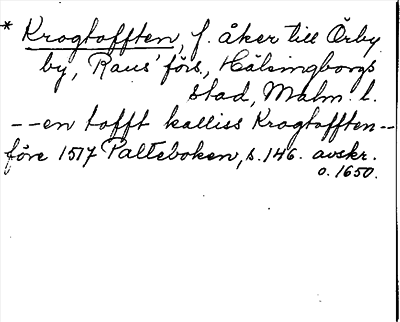 * Krogtofften, f. åker till Örby
by, Raus' förs., Hälsingborgs
stad, Malm. l.
--en tofft kalliss Krogtofften--
före 1517 Palteboken, s. 146. avskr.
o. 1650.